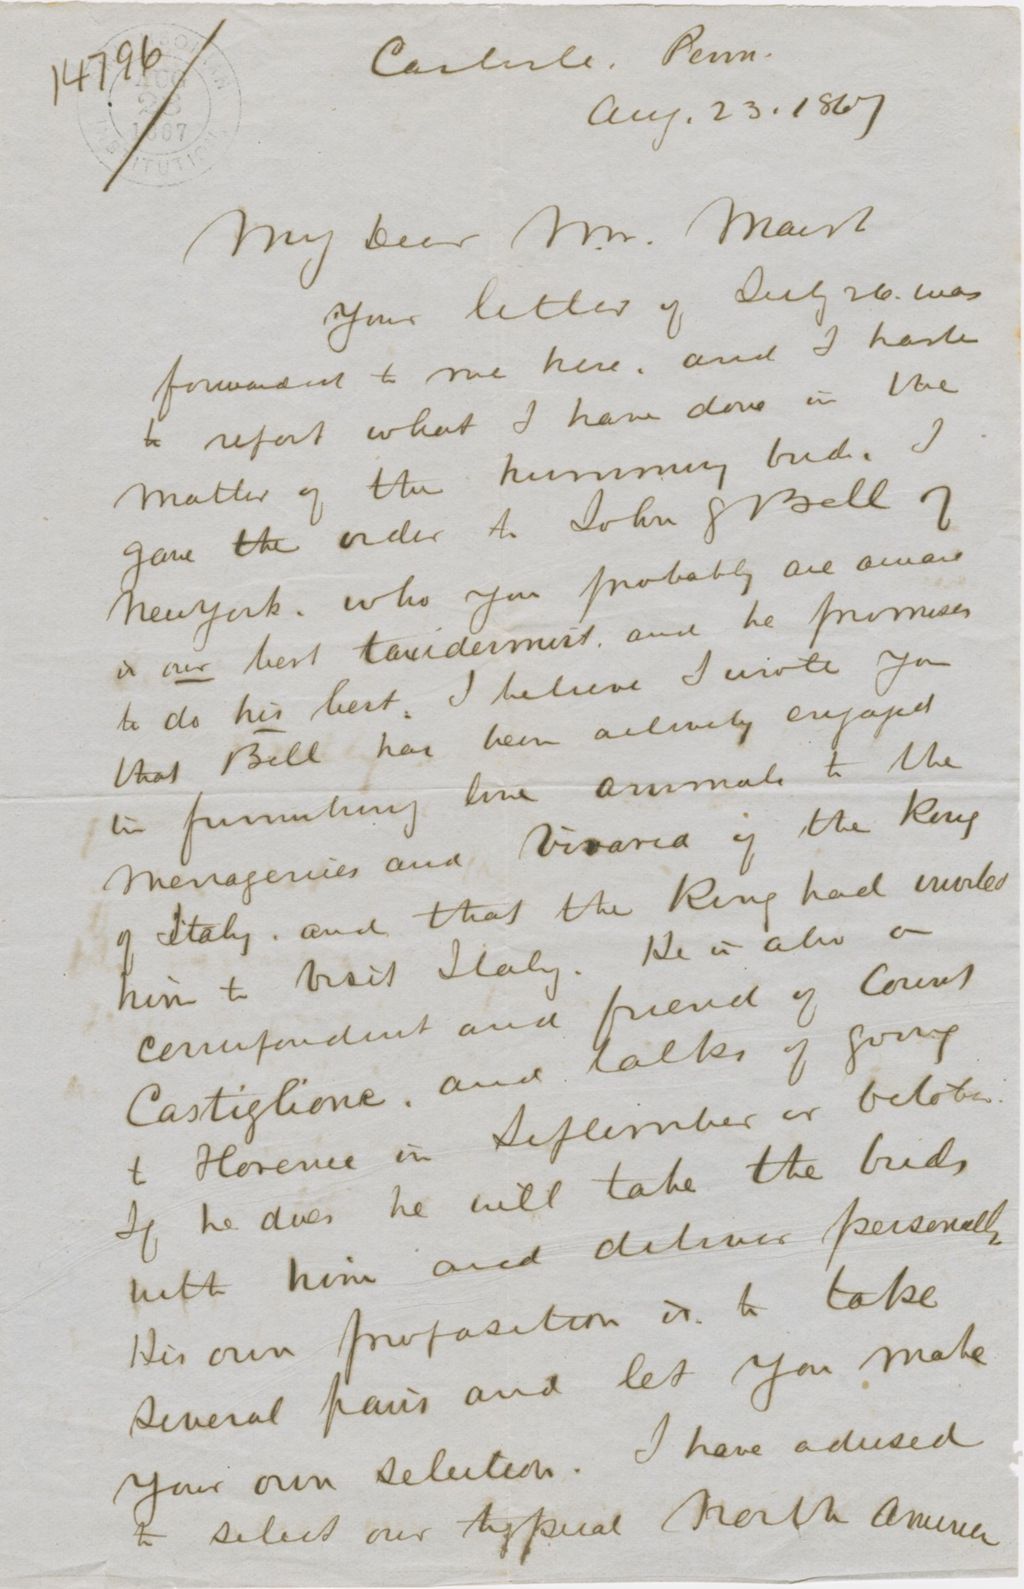 14796
SMITHSONIAN
AUG
28
1867
INSTITUTION
Carlisle. Penn.
Aug. 23. 1867
My Dear Mr. Marsh
Your letter of July 26. was
forwarded to me here. and I haste
to report what I have done in the
matter of the humming birds. I
gave the order to John G Bell of
New York. who you probably are aware
is our best taxidermist. and he promises
to do his best. I believe I wrote you
that Bell has been actively engaged
in furnishing live animals to the
menageries and vivaria of the King
of Italy. and that the King had invited
him to visit Italy. He is also a
correspondent and friend of Count
Castiglione. and talks of going
to Florence in September or October.
If he does he will take the birds
with him and deliver personally
His own proposition is. to take
several pairs and let you make
your own selection. I have advised
to select our typical North America